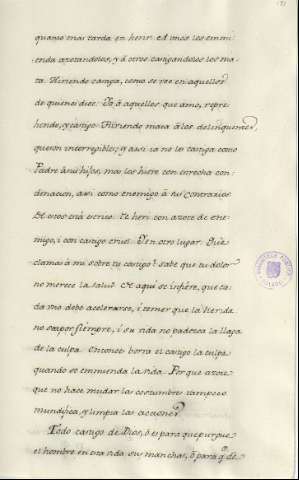 quanto mas tarda en herir. A unos los enmi-
enda azotandolos, y á otros castigandolos los ma-
ta. Hiriendo castiga, como se ve en aquellos
de quienes dice: Yo á aquellos que amo, repre-
hendo, y castigo. Hiriendo mata á los delinquentes,
que son incorregibles; y assi ya no les castiga como
Padre á sus hijos, mas los hiere con estrecha con-
denacion, assi como enemigo á sus contrarios
De esos está escrito: Te heri con azote de ene-
migo, i con castigo cruel. Y en otro lugar: Qué
clamas á mi sobre tu castigo? sabe que tu dolor
no merece la salud. De aqui se infiere, que ca-
da uno debe acelerarse, i temer que la herida
no sea por siempre, i su vida no padezca la llaga
de la culpa. Entonces borra el castigo la culpa,
quando se enmienda la vida. Porque azote
que no hace mudar las costumbres tampoco
mundifica, y limpia las acciones.
Todo castigo de Dios, ó es para que purgue
el hombre en esta vida sus manchas, ó para q.e de